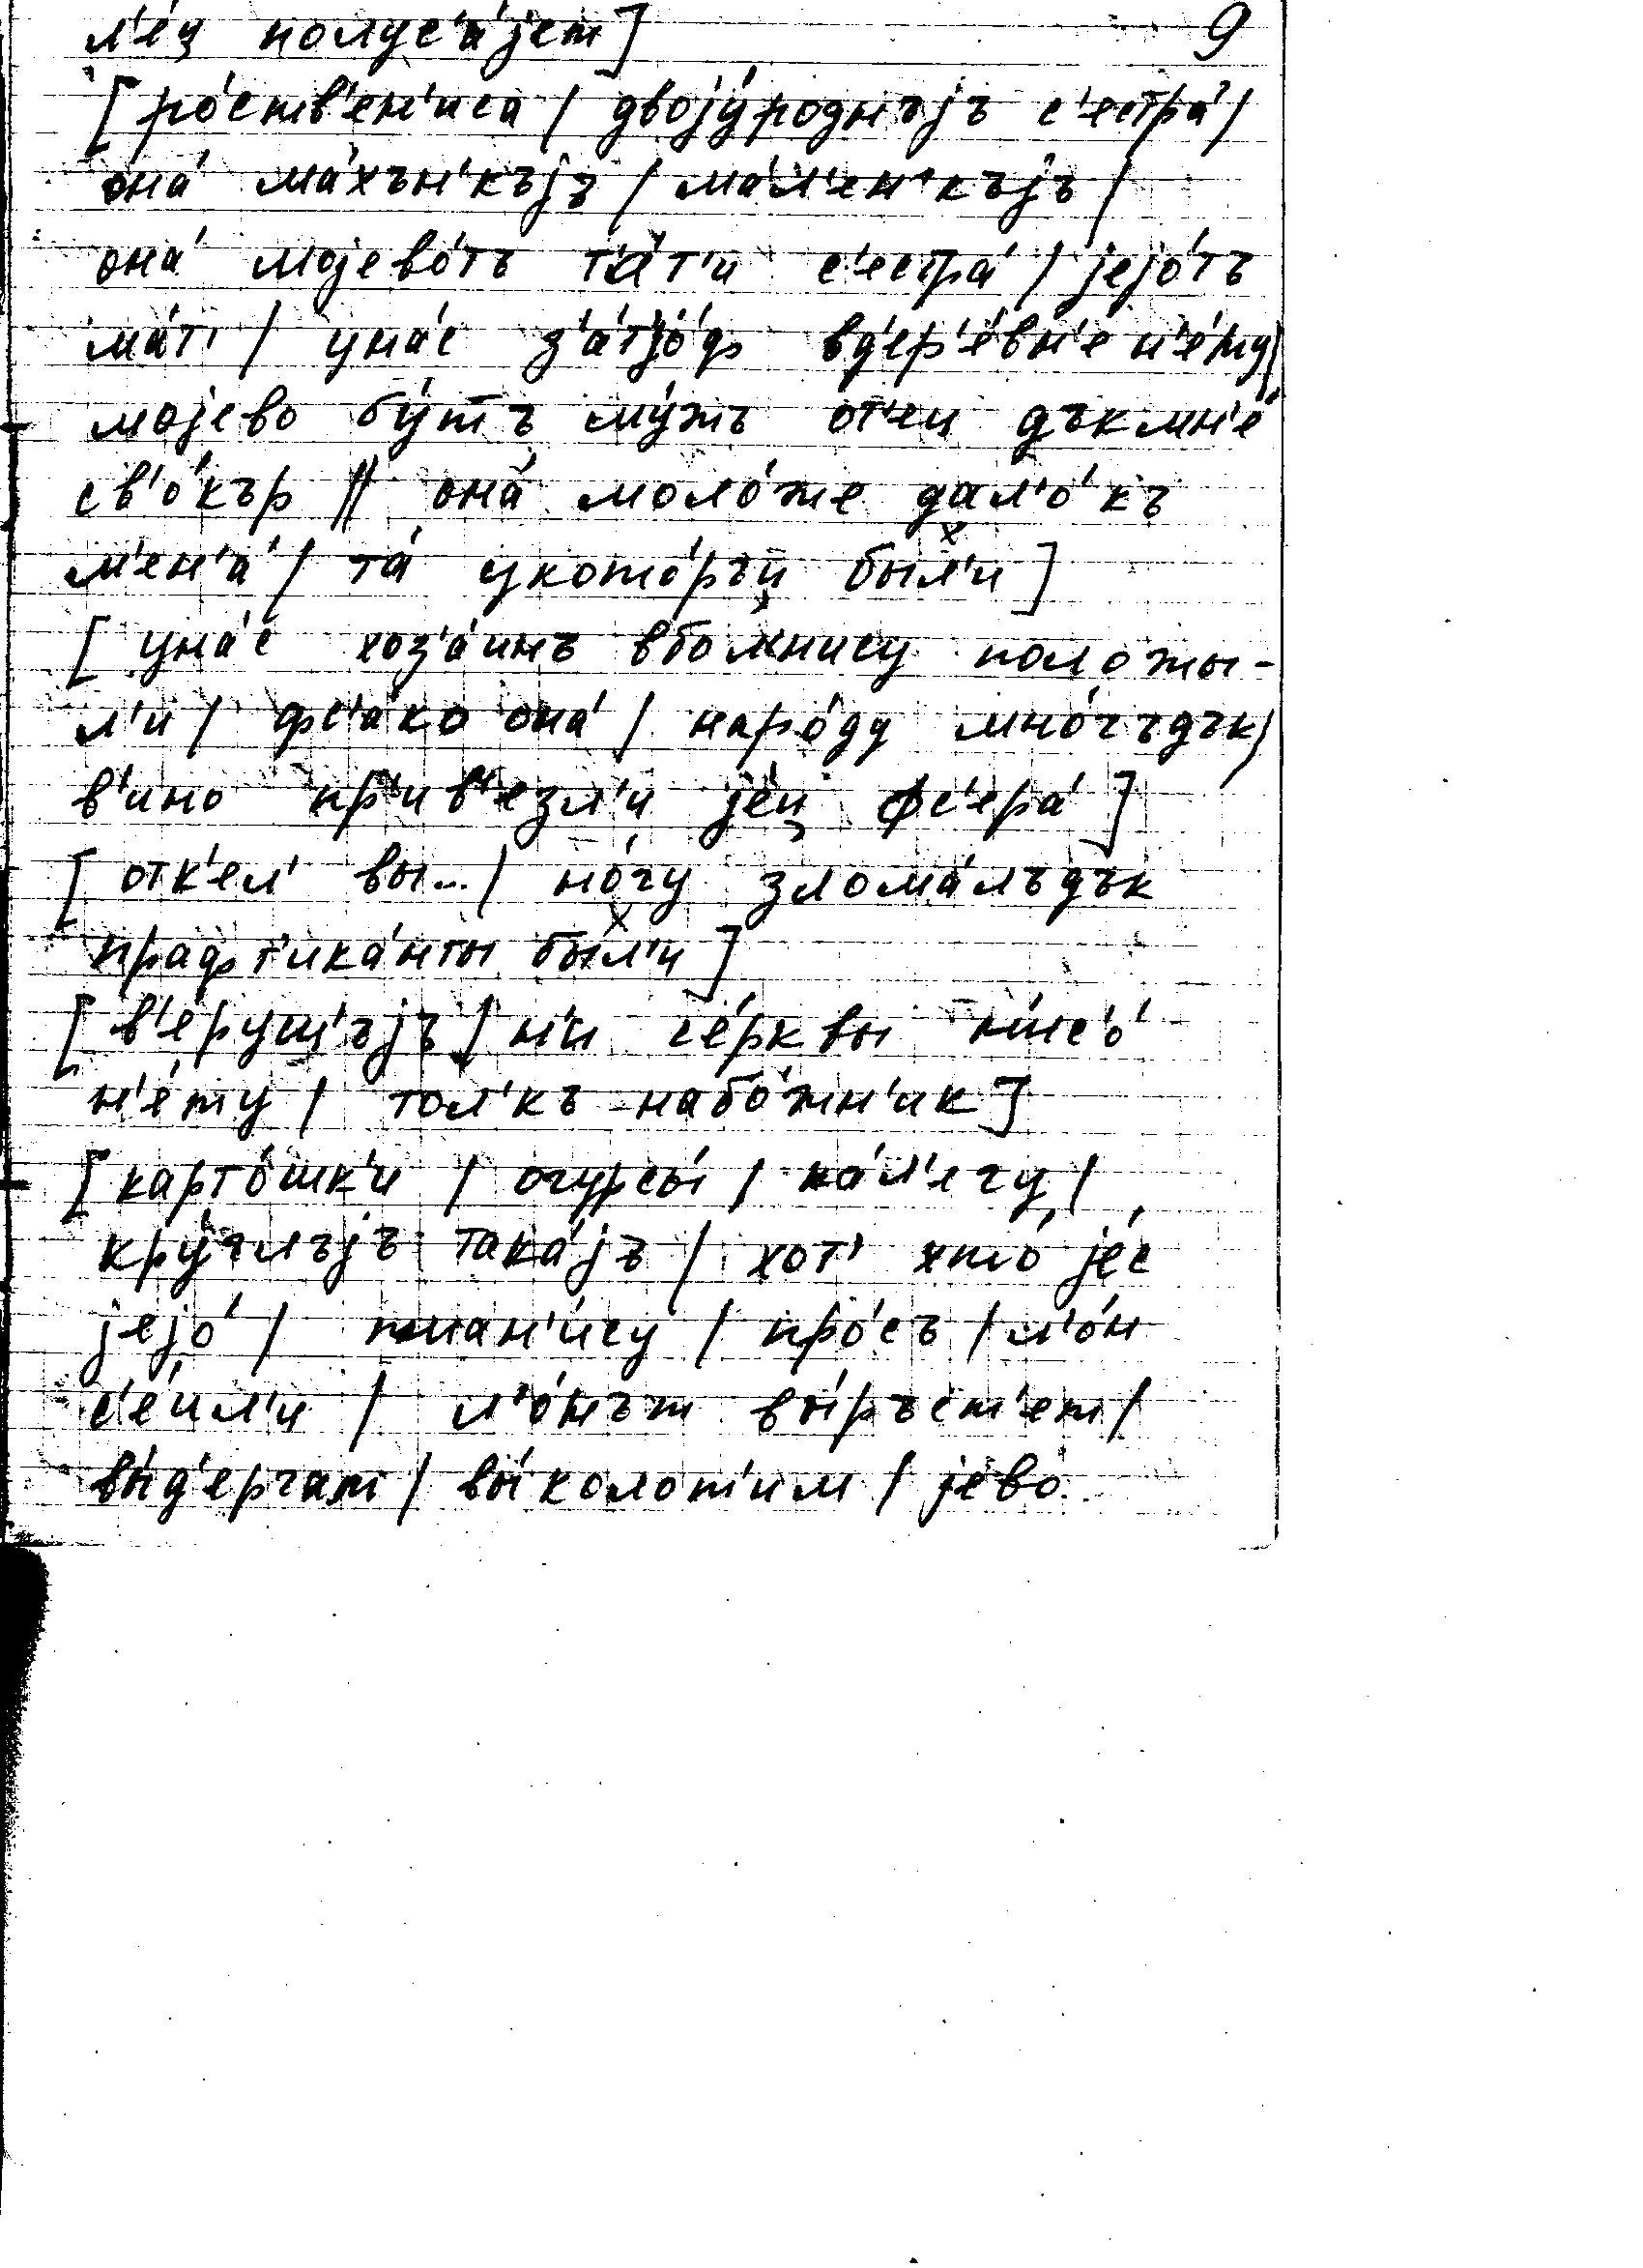 л'е́ц полус'а́jет] 9
[ро́ств'ен'иса / двоjу́роднъjъ с'естра́ /
она́ ма́хън'къjъ / ма́л'ен'къjъ /
она́ моjево́тъ т'а́т'и с'естра́ / jеjо́тъ
ма́т' / уна́с з'а́тjо́ф вд'ер'е́вн'е н'е́ту /
моjево бу́тъ му́жъ от'ец дъкмн'е́
св'о́кър // она́ моло́же дал'о́къ
м'ен'а́ / та́ укото́ръй был'и]
[уна́с хоз'а́инъ вбол'нису положы-
л'и / фс'а́ко она́ / наро́ду мно́гъдък /
в'ино пр'ив'езл'и jе́й фс'ера́]
[отк'ел' вы... / но́гу злома́лъдък
прафт'ика́нты был'и]
[в'е́рущ'ъjъ / н'и се́рквы н'ис'о́
н'е́ту / тол'къ набо́жн'ик]
[карто́шк'и / огурсы́ / ка́л'егу /
кру́глъjъ така́jъ / хот' хто́ jе́с
jеjо́ / пшан'и́су / про́съ / л'о́н
с'е́йл'и / л'о́нът вы́ръст'ет /
вы́д'ергат / вы́колот'им / jево́